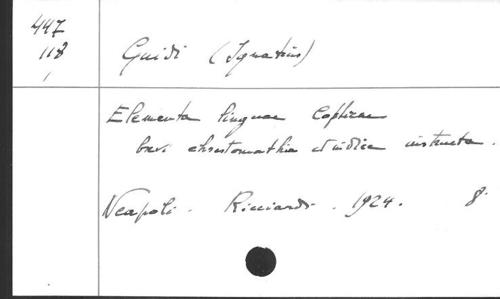 447
118
1
Guidi (Ignatius)
Elementa linguae Copticae
brevi chrestomathia et indice instructa.
Neapoli. Ricciardi. 1924. 8°